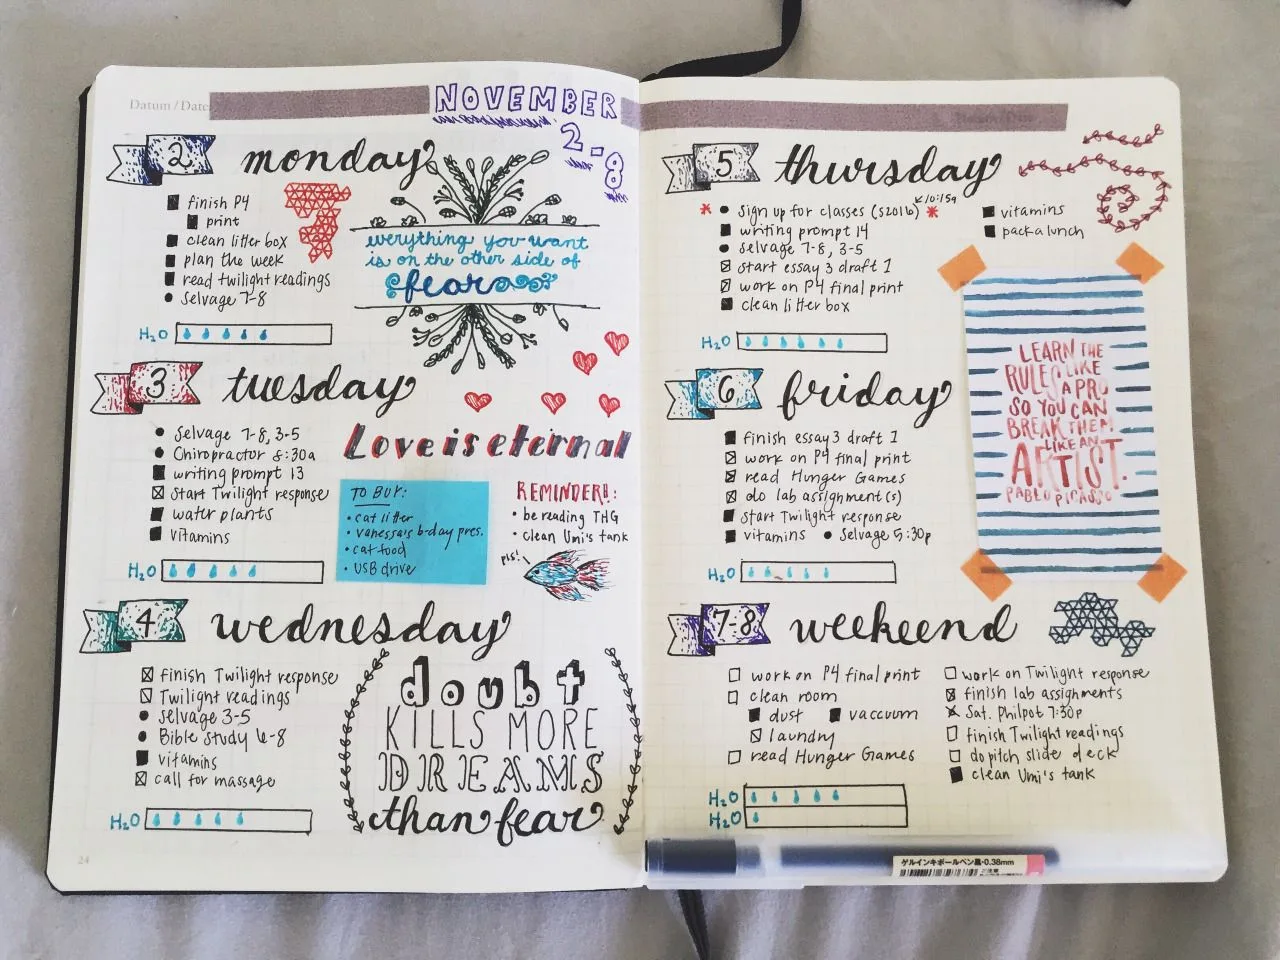 Datum / Date:
NOVEMBER
2-8
2
monday
finish P4
print
clean litter box
plan the week
read twilight readings
Selvage 7-8
H₂O
everything you want
is on the other side of
fear
3
tuesday
Selvage 7-8, 3-5
Chiropractor 8:30a
writing prompt 13
start Twilight response
water plants
vitamins
H₂O
Love is eternal
TO BUY:
• cat litter
• vanessa's b-day pres.
• cat food
• USB drive
REMINDER!!:
• be reading THG
• clean Umi's tank
pls!
4
wednesday
finish Twilight response
Twilight readings
Selvage 3-5
Bible Study 6-8
vitamins
call for massage
H₂O
doubt
KILLS MORE
DREAMS
than fear
24
5
thursday
Sign up for classes (S2016) 10:15a
writing prompt 14
Selvage 7-8, 3-5
start essay 3 draft 1
work on P4 final print
clean litter box
vitamins
pack a lunch
H₂O
6
friday
finish essay 3 draft 1
work on P4 final print
read Hunger Games
do lab assignment(s)
start Twilight response
vitamins • Selvage 5:30p
H₂O
LEARN THE
RULES LIKE
A PRO
SO YOU CAN
BREAK THEM
LIKE AN
ARTIST.
PABLO PICASSO
7-8
weekend
work on P4 final print
clean room
dust vaccuum
laundry
read Hunger Games
work on Twilight response
finish lab assignments
Sat. Philpot 7:30p
finish Twilight readings
do pitch slide deck
clean Umi's tank
H₂O
H₂O
ゲルインキボールペン黒・0.38mm